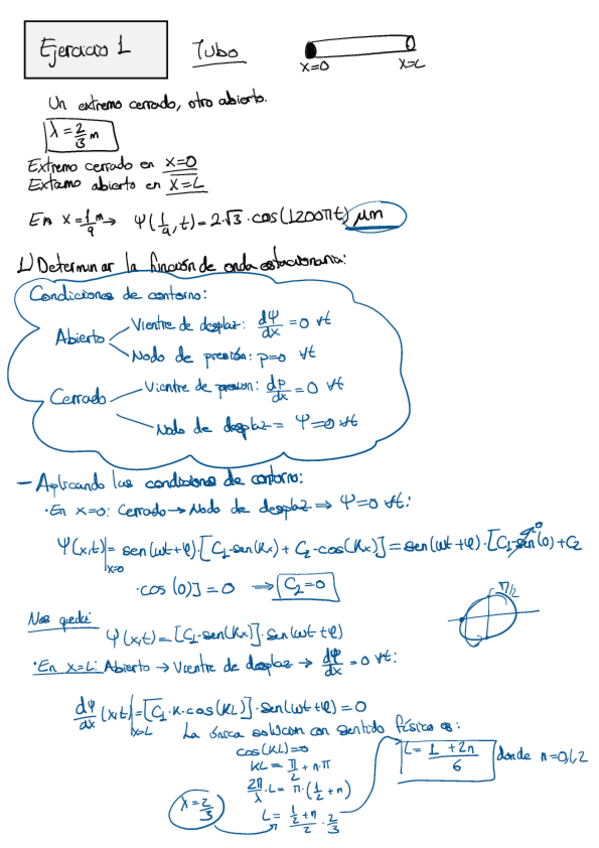 Ejercicio 1
Tubo
x=0
x=L
Un extremo cerrado, otro abierto.
λ = 2/3 m
Extremo cerrado en x=0
Extremo abierto en x=L
En x = 1/9 m → Ψ(1/9, t) = 2·√3 · cos(1200πt) μm
1) Determinar la función de onda estacionaria:
Condiciones de contorno:
Abierto
Vientre de desplaz: dΨ/dx = 0 ∀t
Nodo de presión: p=0 ∀t
Cerrado
Vientre de presion: dp/dx = 0 ∀t
Nodo de desplaz = Ψ=0 ∀t
— Aplicando las condiciones de contorno:
· En x=0: Cerrado → Nodo de desplaz ⇒ Ψ=0 ∀t:
Ψ(x,t)|x=0 = sen(ωt+φ)·[C1·sen(Kx) + C2·cos(Kx)] = sen(ωt+φ)·[C1·sen(0) + C2
·cos(0)] = 0 → C2=0
π/2
Nos queda:
Ψ(x,t) = [C1·sen(Kx)]·sen(ωt+φ)
· En x=L: Abierto → Vientre de desplaz → dΨ/dx = 0 ∀t:
dΨ/dx (x,t)|x=L = [C1·K·cos(KL)]·sen(ωt+φ) = 0
La única solucion con sentido físico es:
cos(KL)=0
KL = π/2 + n·π
2π/λ · L = π·(1/2 + n)
λ = 2/3
L = (1/2 + n)/2 · 2/3
L = (1 + 2n)/6 donde n=0,1,2